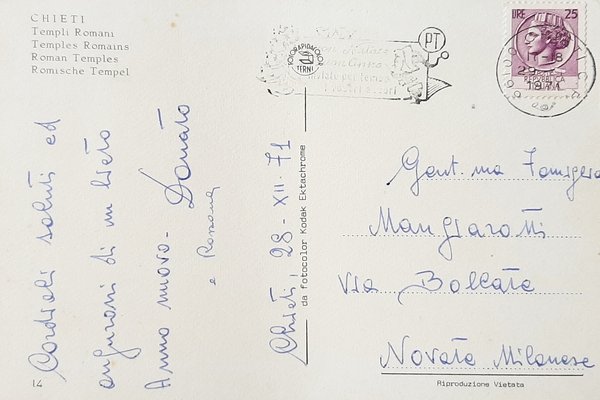 CHIETI
Templi Romani
Temples Romains
Roman Temples
Römische Tempel
Cordiali saluti ed
auguroni di un lieto
Anno nuovo - Donato
e Rossana
Chieti, 28-XII-71
da fotocolor Kodak Ektachrome
FOTORAPIDACOLOR
TERNI
PT
LIRE 25
REPUBBLICA
1971
Gent.ma Famiglia
Mangiarotti
Via Bollate
Novate Milanese
Riproduzione Vietata
14